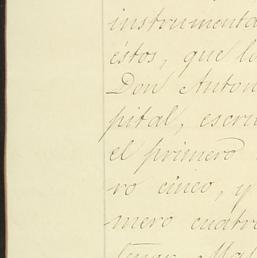 instrumenta
éstos, que la
Don Anton
pital, escri
el primero
ro cinco, y
mero cuatro